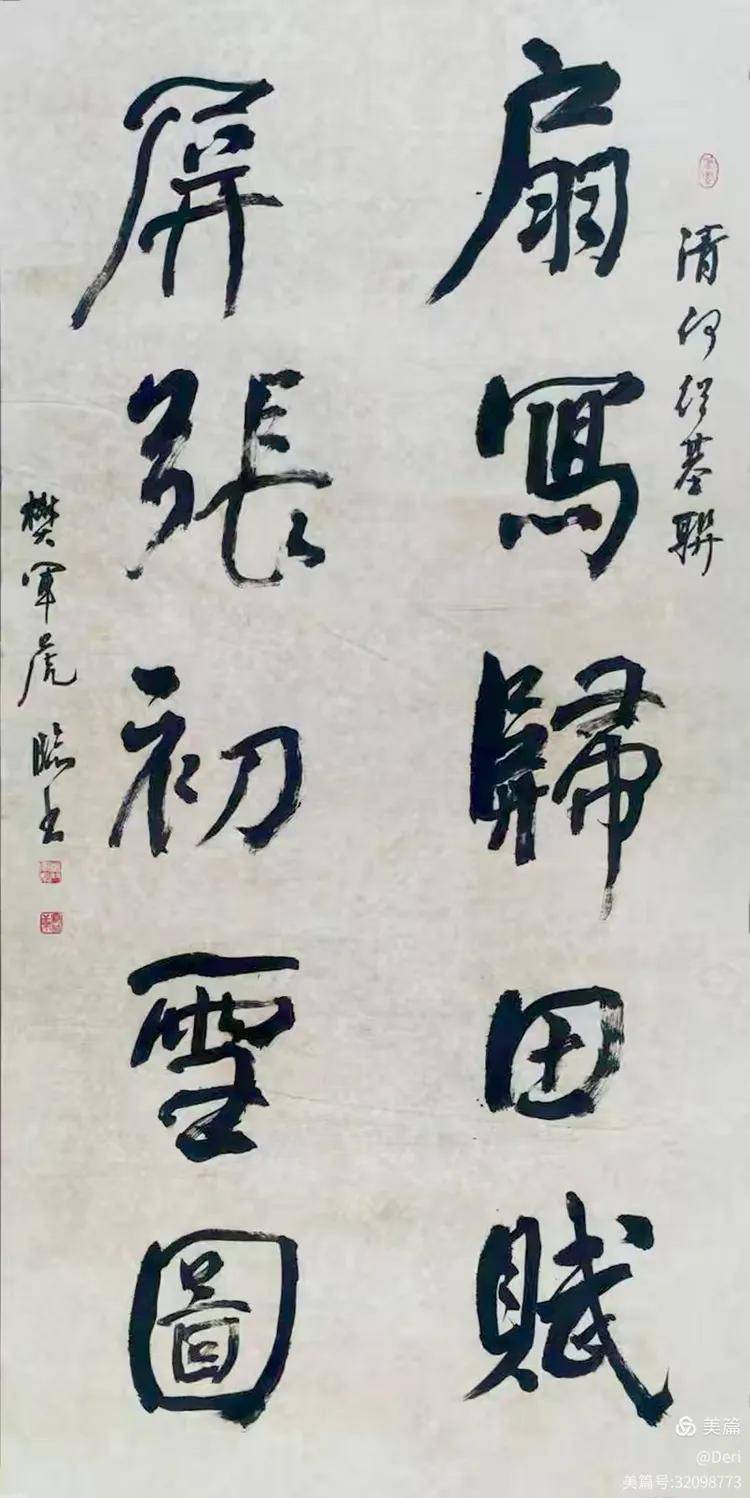 清何绍基聯
扇寫歸田賦
屏張初雪圖
樊軍虎臨书
美篇
@Deri
美篇号:32098773